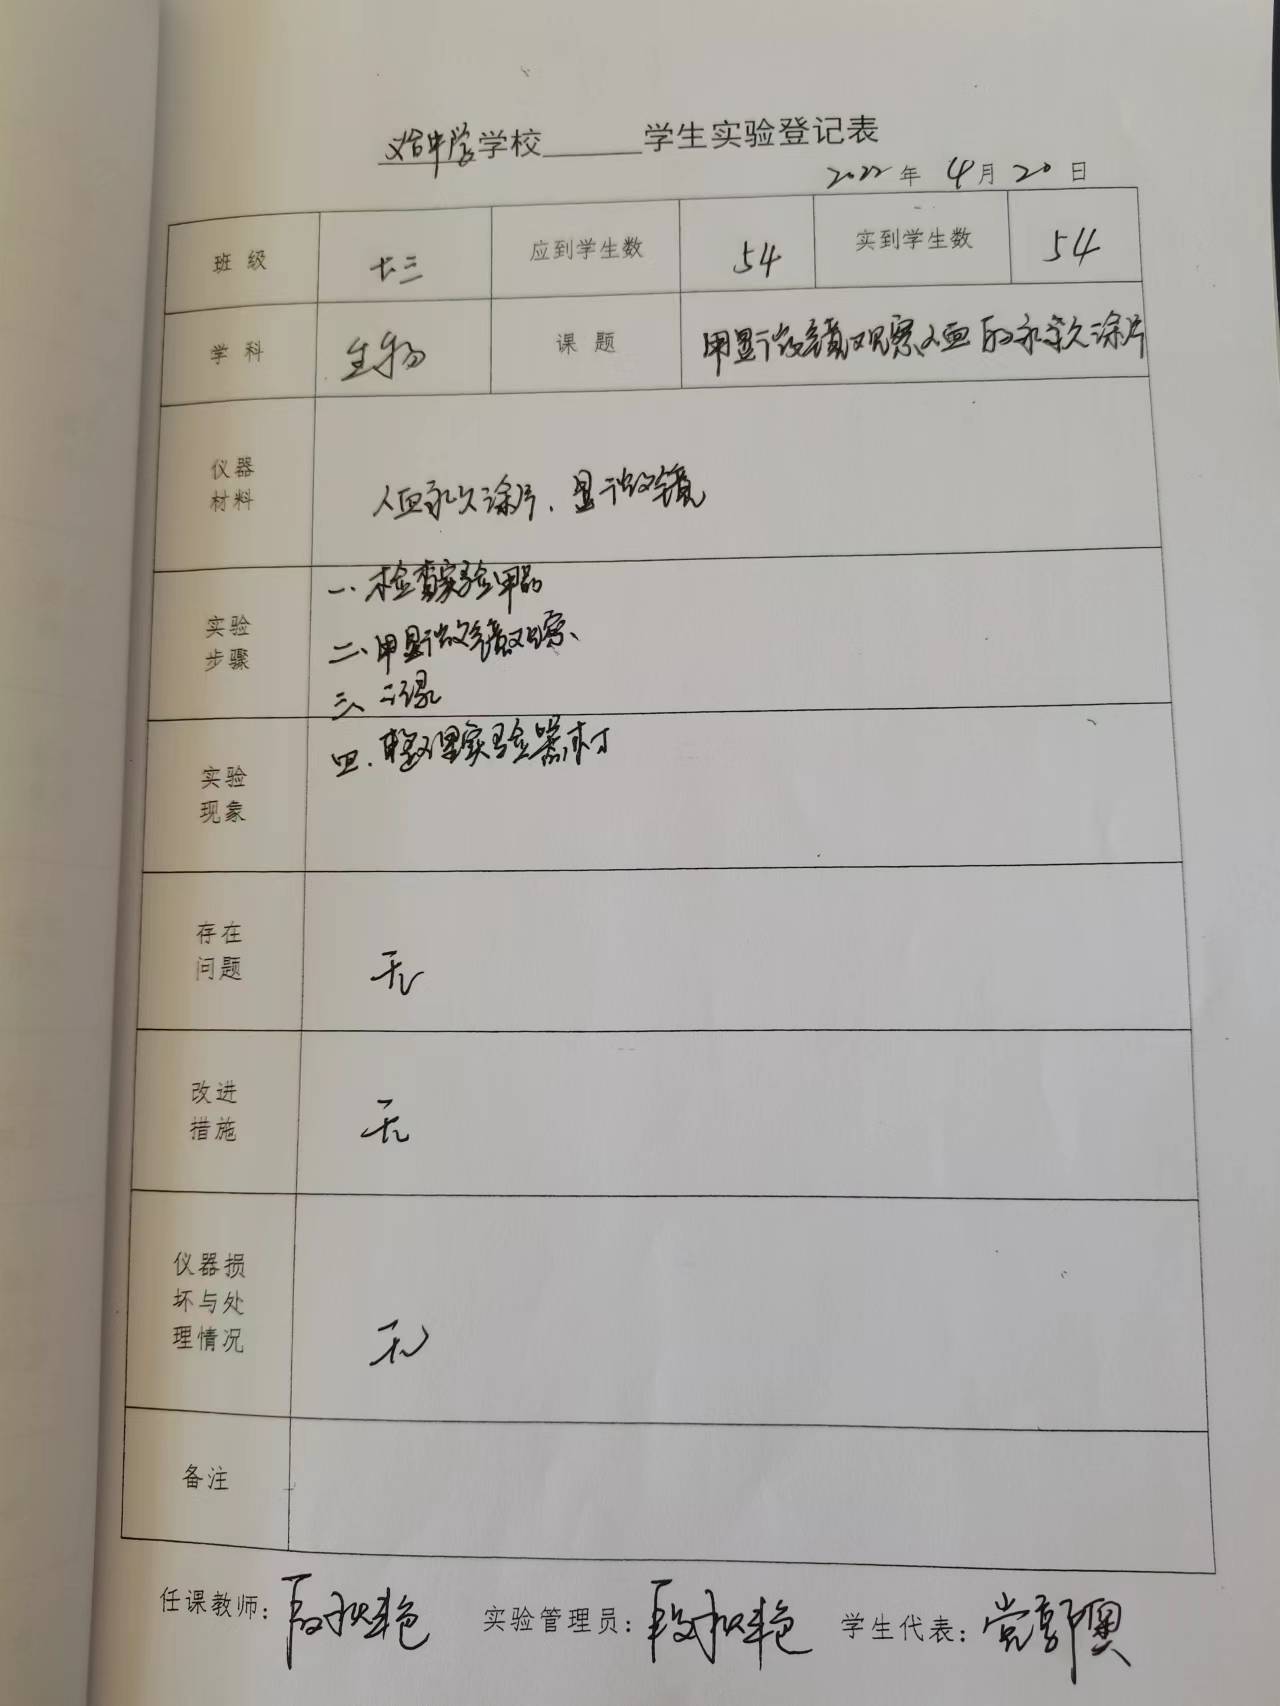 义合中学学校______学生实验登记表
2022年 4月20日
班 级 七三 应到学生数 54 实到学生数 54
学 科 生物 课 题 用显微镜观察人血的永久涂片
仪器
材料
人血永久涂片、显微镜
实验
步骤
一、检查实验用品
二、用显微镜观察、
三、记录
四、整理实验器材
实验
现象
存在
问题
无
改进
措施
无
仪器损
坏与处
理情况
无
备注
任课教师：段秋艳 实验管理员：段秋艳 学生代表：党郭奥